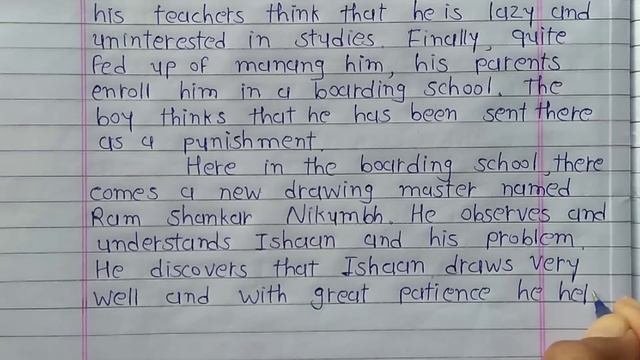 his teachers think that he is lazy and
uninterested in studies. Finally, quite
fed up of manang him, his parents
enroll him in a boarding school. The
boy thinks that he has been sent there
as a punishment.
Here in the boarding school, there
comes a new drawing master named
Ram Shankar Nikumbh. He observes and
understands Ishaan and his problem.
He discovers that Ishaan draws very
well and with great patience he hel